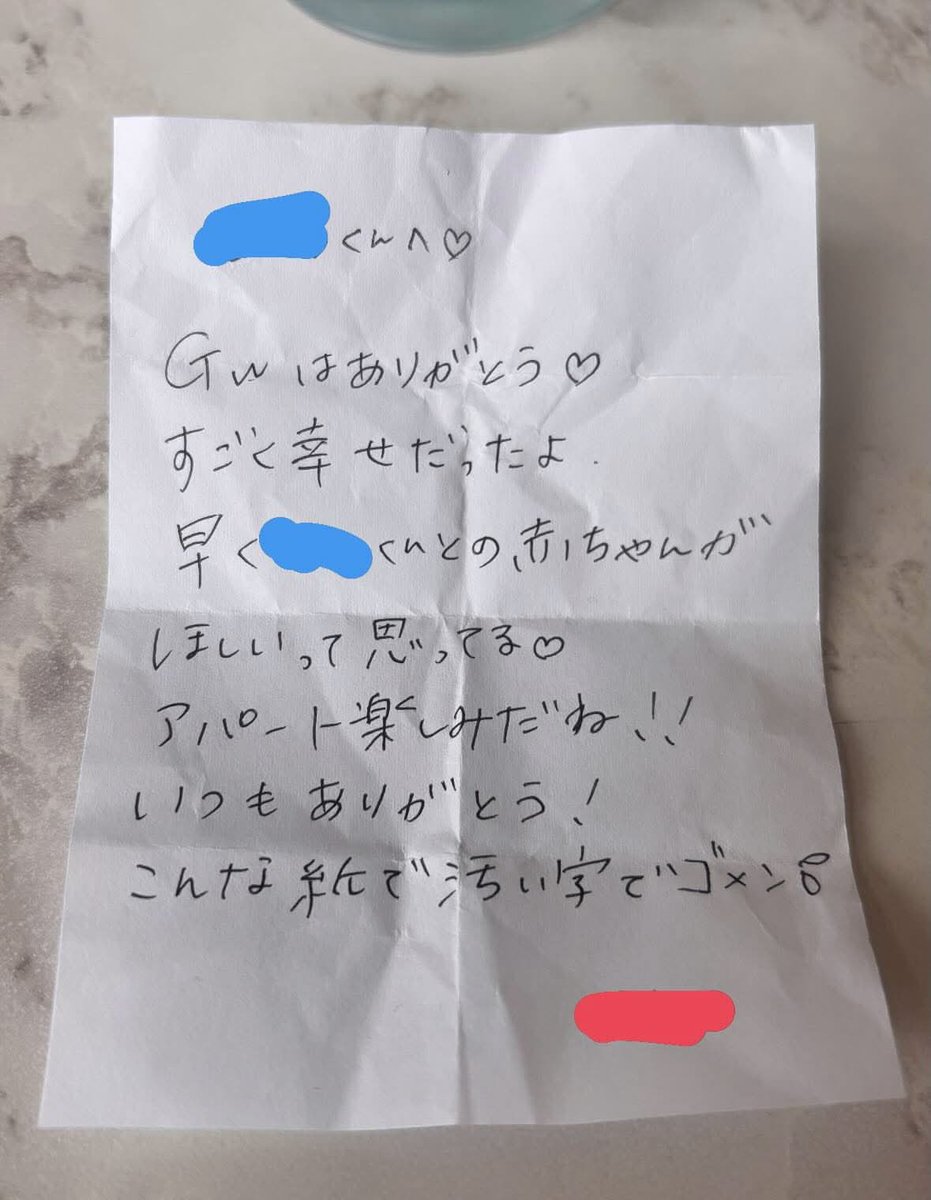 くんへ♡
GWはありがとう♡
すごく幸せだったよ.
早くくんとの赤ちゃんが
ほしいって思ってる♡
アパート楽しみだね!!
いつもありがとう!
こんな紙で汚い字でゴメン